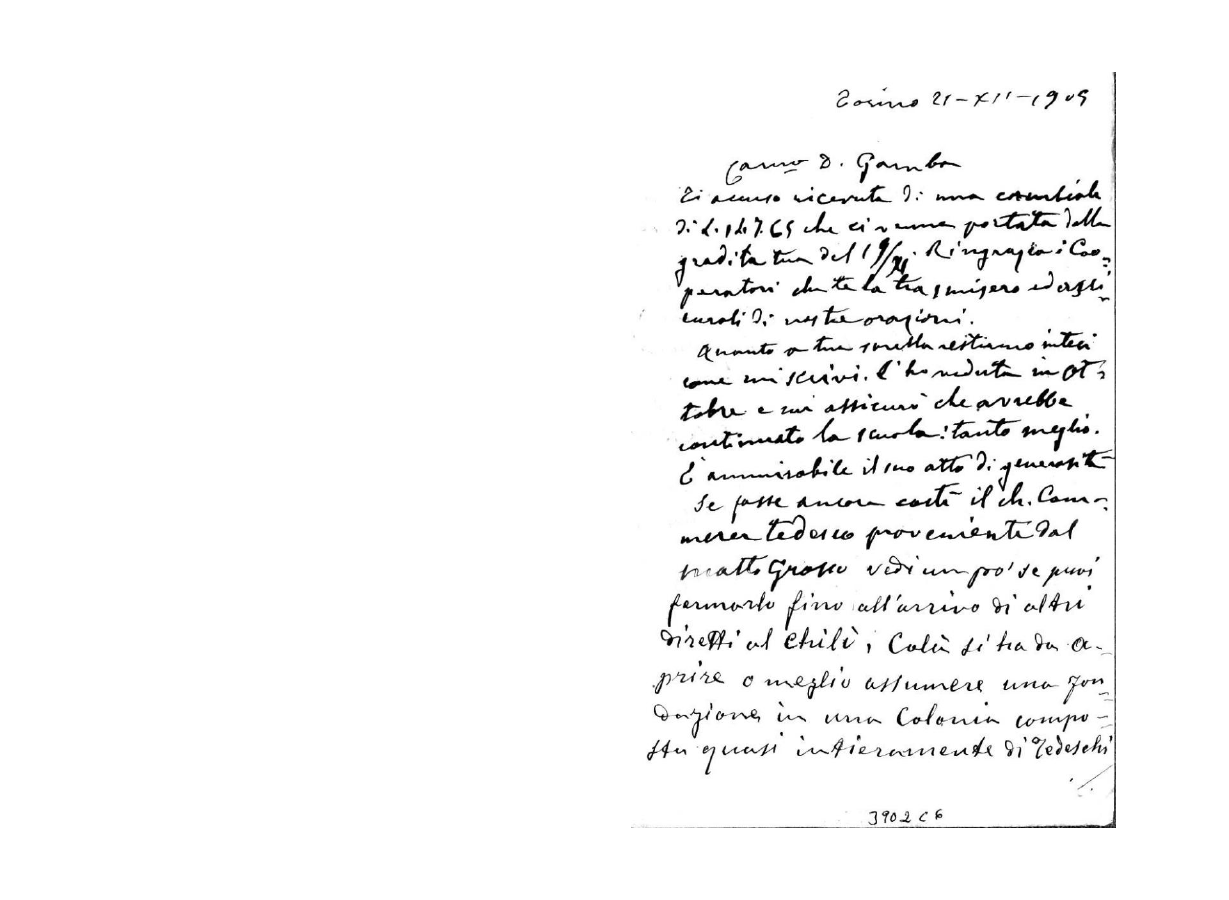 Torino 21-XII-1905
Carmo D. Gamba
Ti accuso ricevuta di una cambiale
di L. 147.65 che ci venne portata dalla
gradita tua del 19/XI. Ringrazia i Coo-
peratori che te la trasmisero ed assi-
curali di nostre orazioni.
Quanto a tua sorella restiamo intesi
come mi scrivi. L'ho veduta in ot-
tobre e mi assicurò che avrebbe
continuato la scuola: tanto meglio.
È ammirabile il suo atto di generosità
Se fosse ancora costì il ch. Cam-
merer tedesco proveniente dal
Matto Grosso vedi un po' se puoi
fermarlo fino all'arrivo di altri
diretti al Chilì, Colà si ha da a-
prire o meglio assumere una fon-
dazione in una Colonia compo-
sta quasi intieramente di Tedeschi
./.
3902 C6